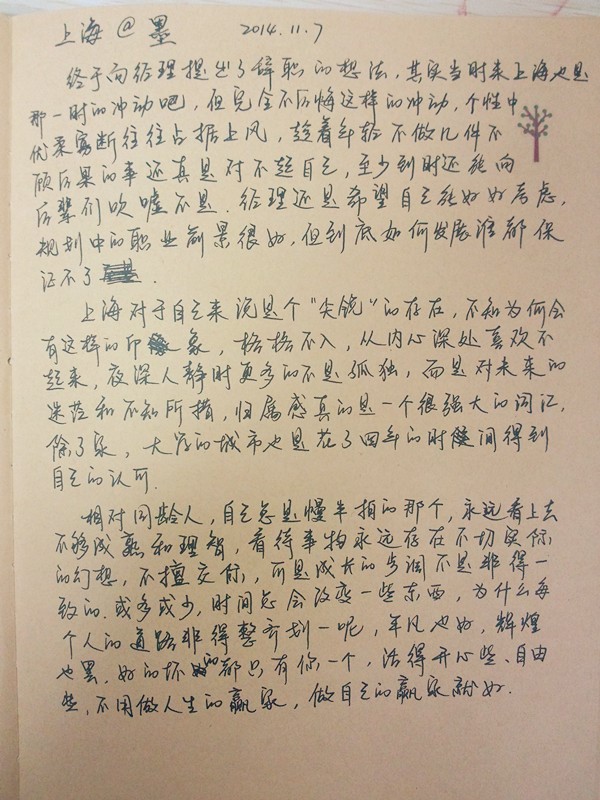 上海@墨 2014.11.7
终于向经理提出了辞职的想法，其实当时来上海也是
那一时的冲动吧，但完全不后悔这样的冲动，个性中
优柔寡断往往占据上风，趁着年轻不做几件不
顾后果的事还真是对不起自己，至少到时还能向
后辈们吹嘘不是．经理还是希望自己能好好考虑，
规划中的职业前景很好，但到底如何发展谁都保
证不了．
上海对于自己来说是个“尖锐”的存在，不知为何会
有这样的印象，格格不入，从内心深处喜欢不
起来，夜深人静时更多的不是孤独，而是对未来的
迷茫和不知所措，归属感真的是一个很强大的词汇，
除了家，大学的城市也是花了四年的时间得到
自己的认可．
相对同龄人，自己总是慢半拍的那个，永远看上去
不够成熟和理智，看待事物永远存在不切实际
的幻想，不擅交际，可是成长的步调不是非得一
致的．或多或少，时间总会改变一些东西，为什么每
个人的道路非得整齐划一呢，平凡也好，辉煌
也罢，好的坏的都只有你一个，活得开心些、自由
些，不用做人生的赢家，做自己的赢家就好．